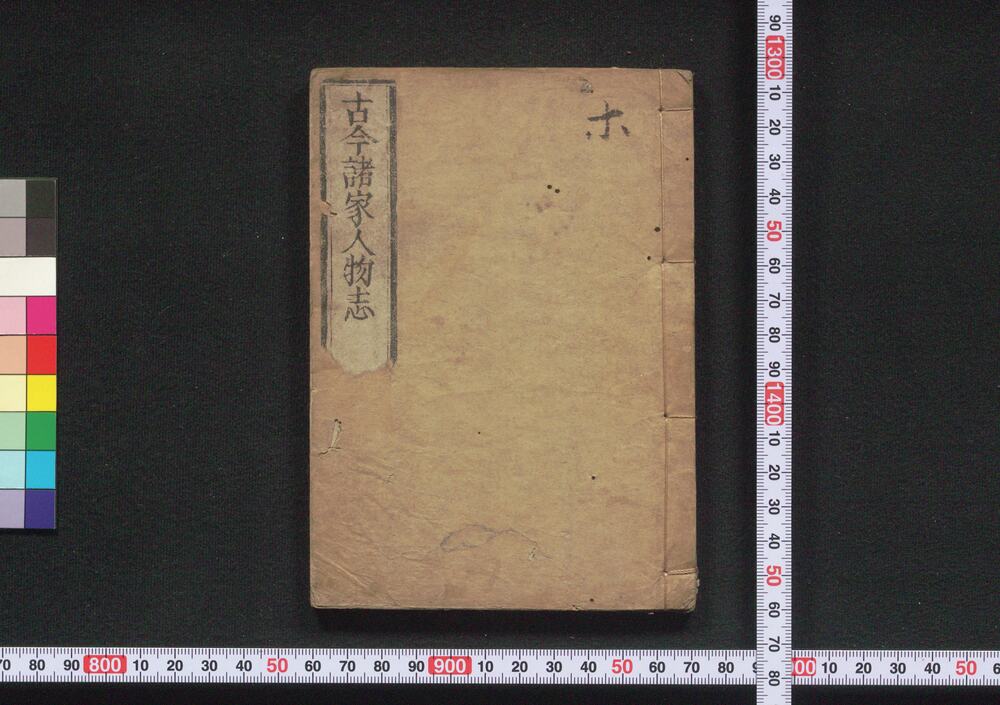 古今諸家人物志
ホ
90 1300 10 20 30 40 50 60 70 80 90 1400 10 20 30 40 50 60 70 80
70 80 90 800 10 20 30 40 50 60 70 80 90 900 10 20 30 40 50 60 70 80 9 00 10 20 30 40 50 6